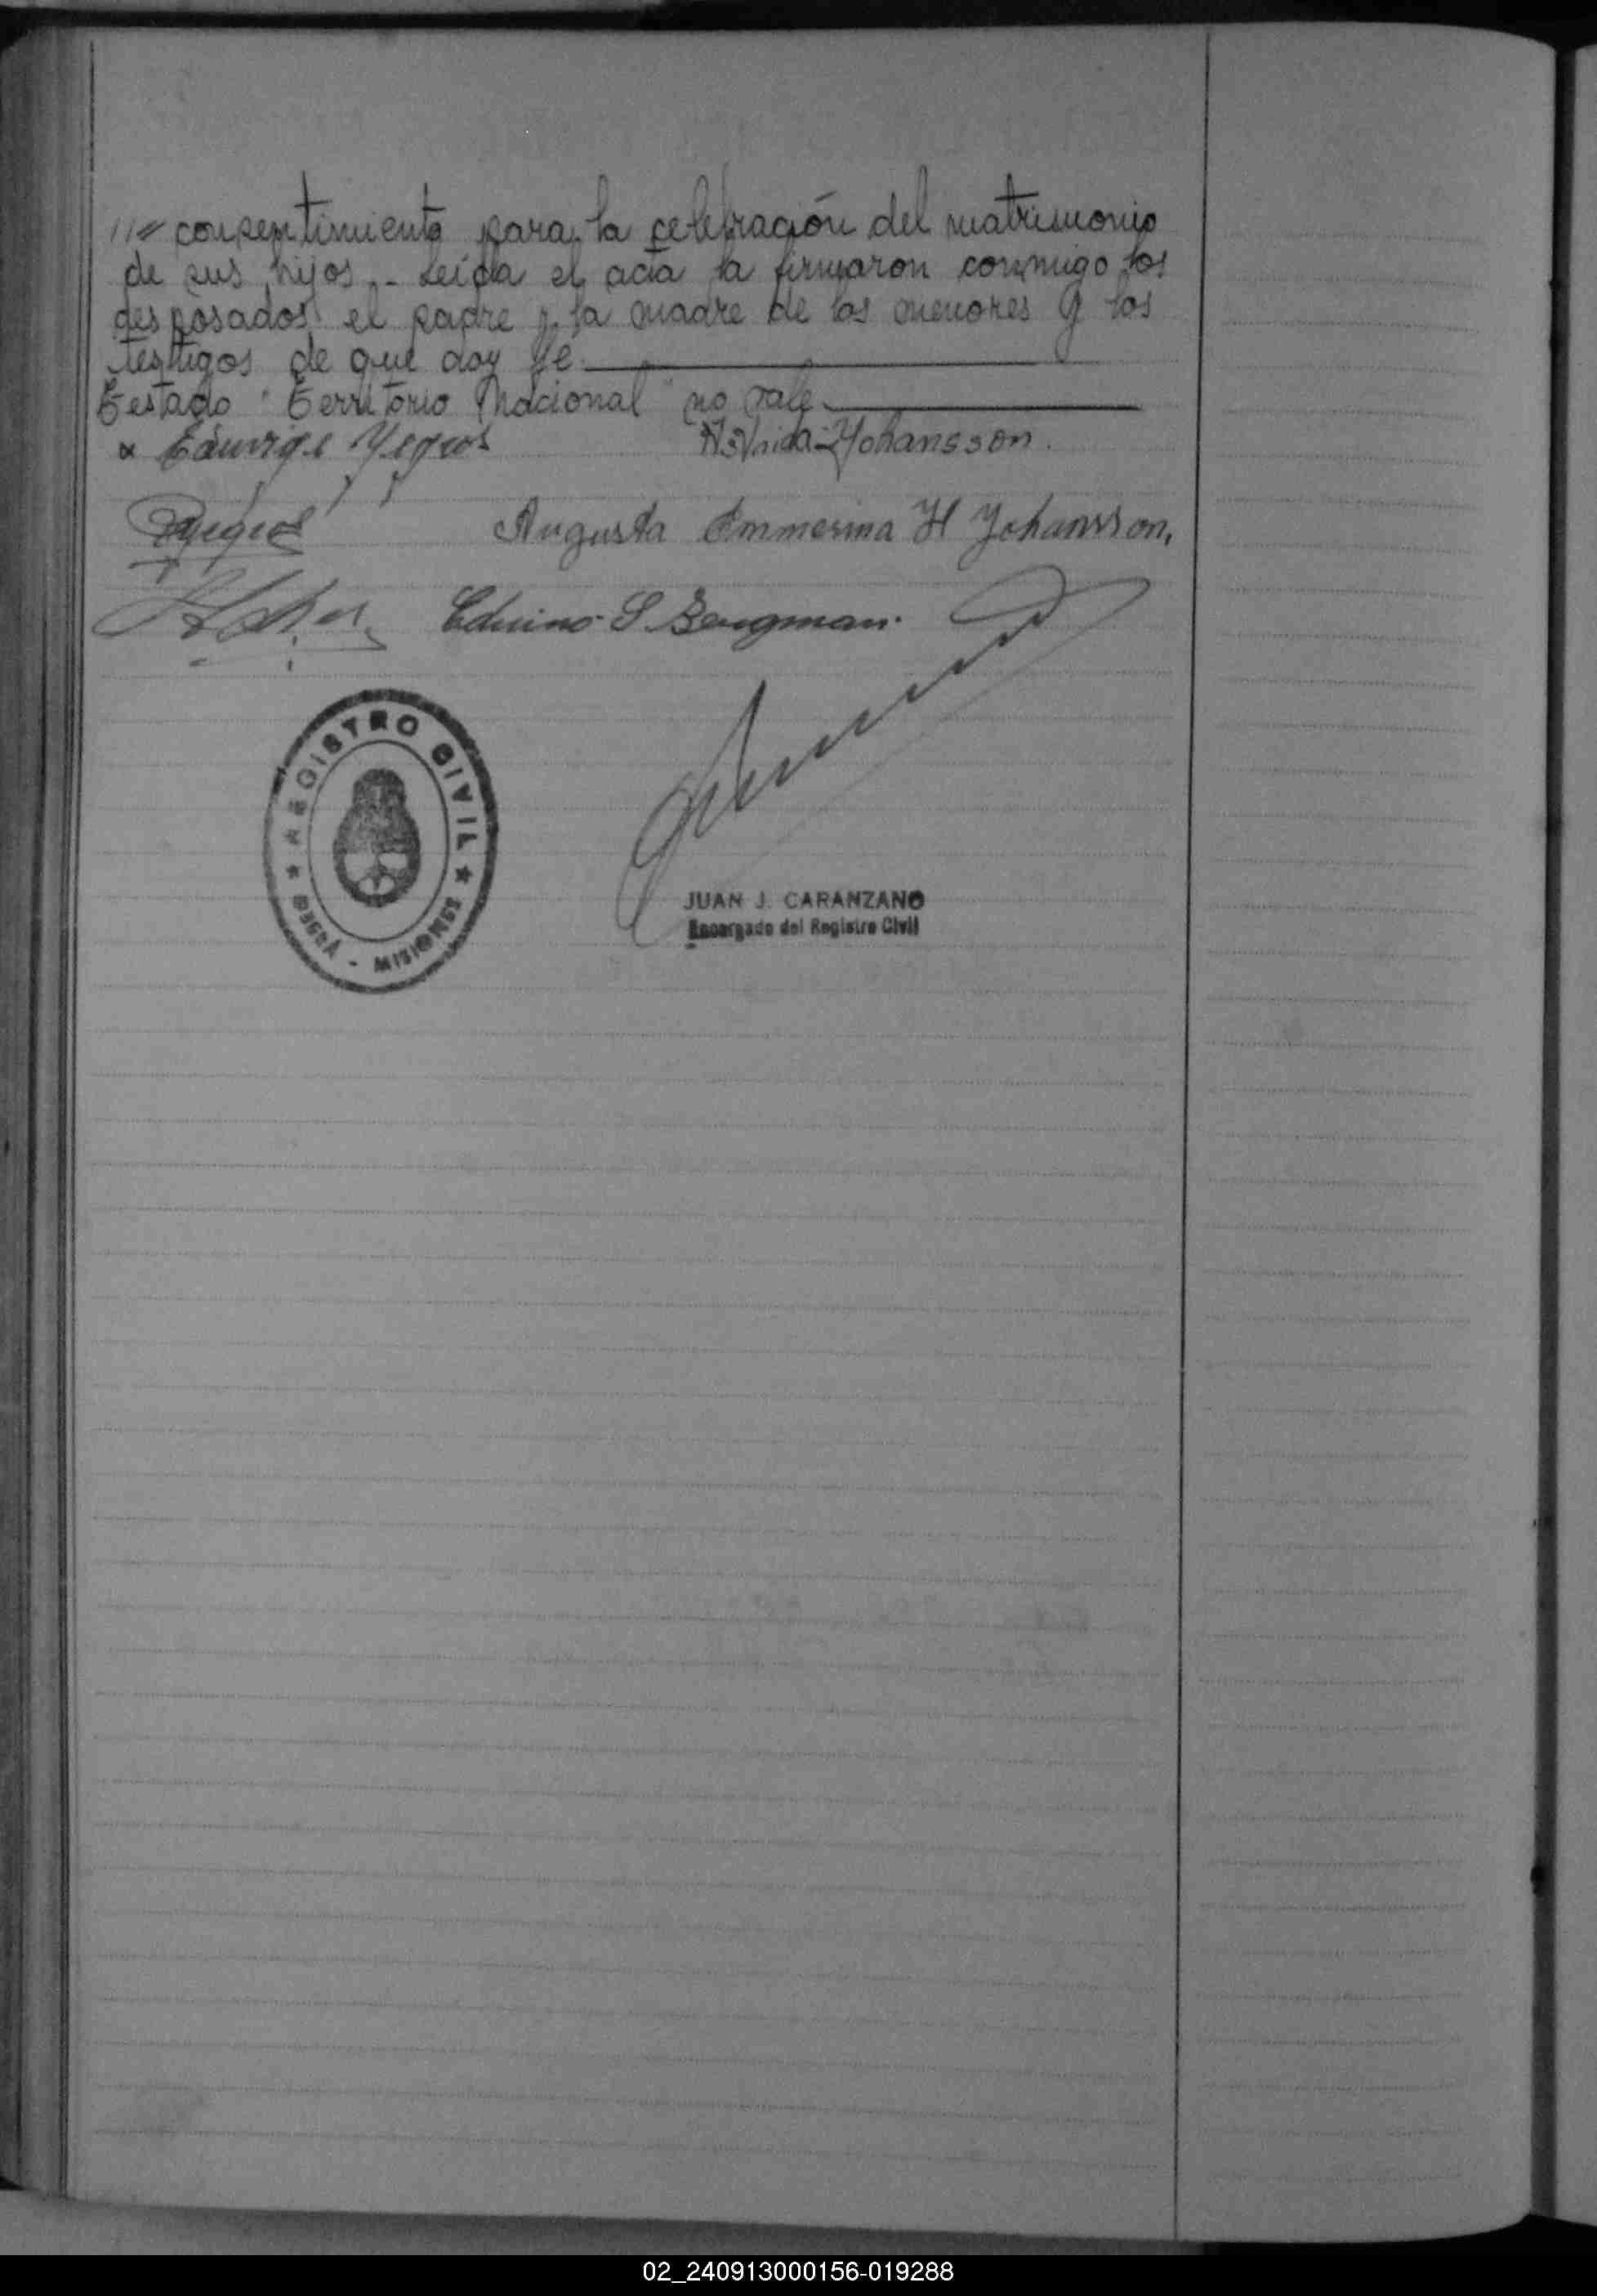 consentimiento para la celebración del matrimonio
de sus hijos.- Leída el acta la firmaron conmigo los
desposados el padre y la madre de los menores y los
testigos de que doy fé.
Testado "Territorio Nacional" no vale.
x Eduvige Yegros
Yohansson.
Yegros
Augusta Emmerina H Yohansson,
Eduino S Bergman.
REGISTRO CIVIL
OBERÁ - MISIONES
JUAN J. CARANZANO
Encargado del Registro Civil
02_240913000156-019288